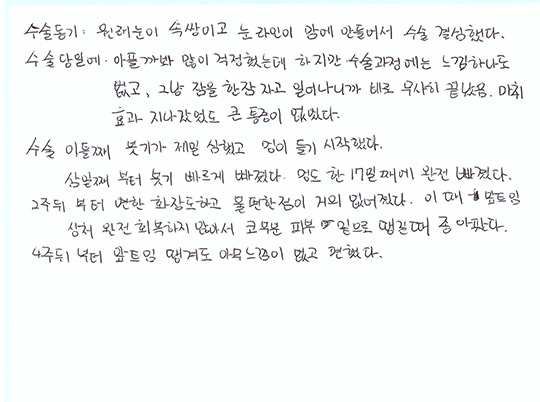 수술동기: 원래눈이 속쌍이고 눈 라인이 맘에 안들어서 수술 결심했다.
수술 당일에. 아플까봐 많이 걱정했는데 하지만 수술과정에는 느낌하나도
없고, 그냥 잠을 한잠 자고 일어나니까 바로 무사히 끝났음. 마취
효과 지나갔었도 큰 통증이 없었다.
수술 이틀째 붓기가 제일 심했고 멍이 들기 시작했다.
삼일째 부터 붓기 빠르게 빠졌다. 멍도 한 17일 째에 완전 빠졌다.
2주뒤 부터 연한 화장도하고 불편한점이 거의 없어졌다. 이 때 앞트임
상처 완전 회복하지 않아서 코부분 피부 밑으로 땡길때 좀 아팠다.
4주뒤 부터 앞트임 땡겨도 아무느낌이 없고 편했다.